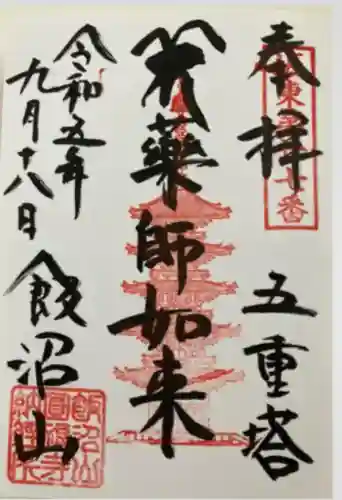 奉拝
五重塔
薬師如来
令和五年
九月十八日
飯沼山
飯沼山
圓福寺
納経印